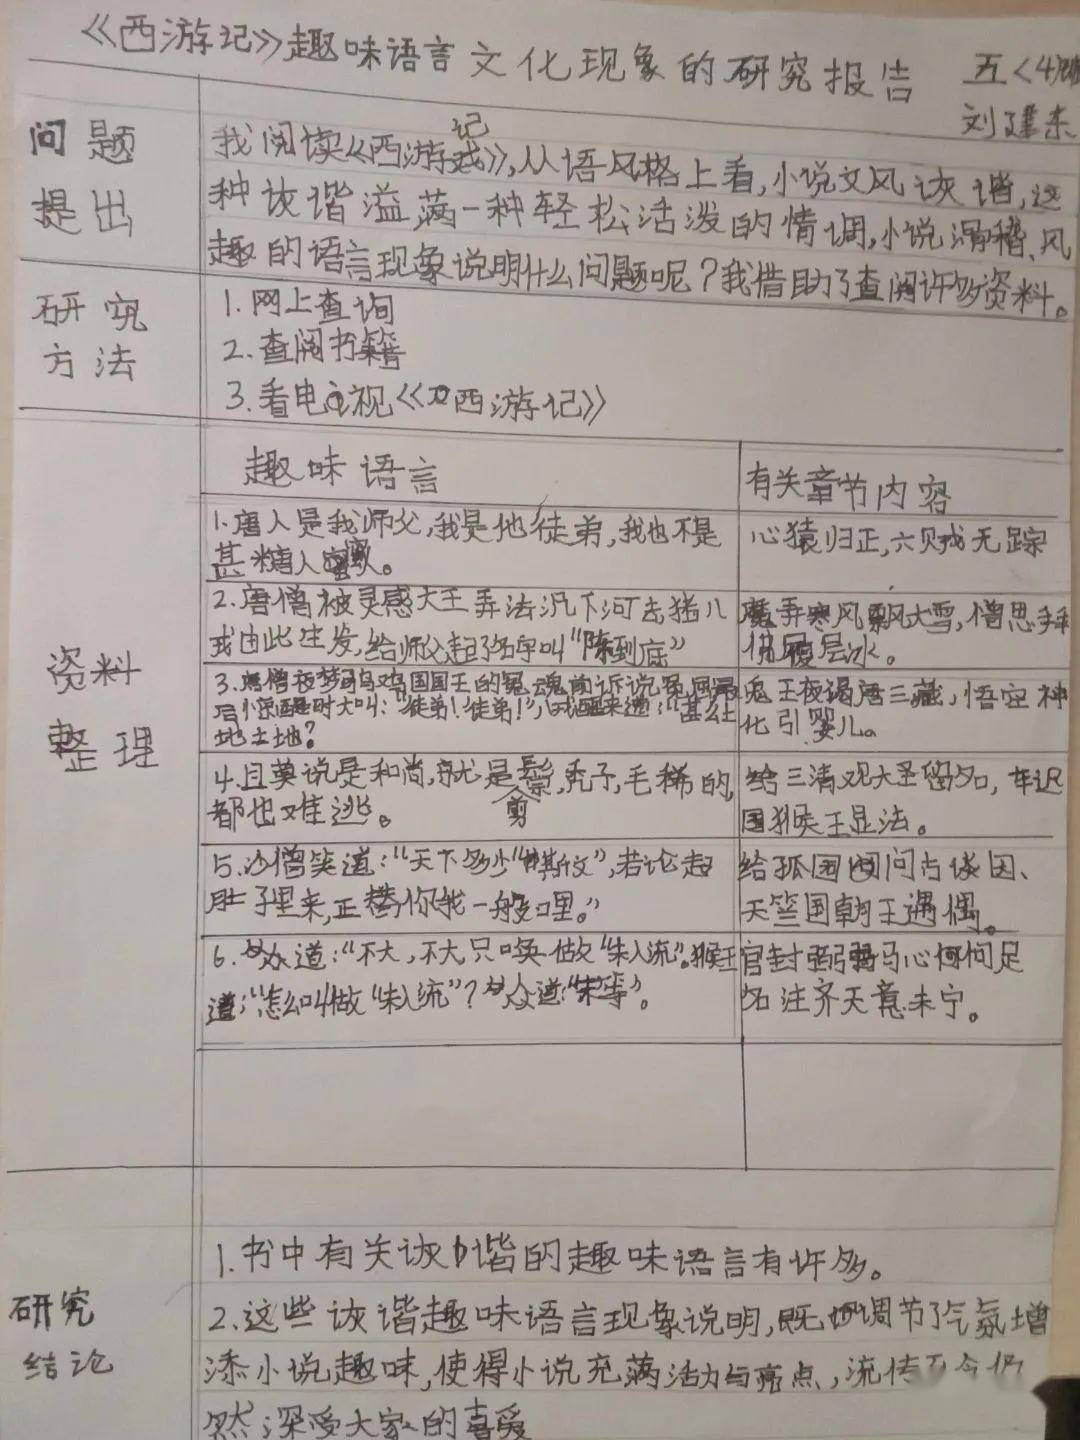 《西游记》趣味语言文化现象的研究报告
五<4>班
刘建东
问题
提出
我阅读《西游记》,从语风格上看,小说文风诙谐,这
种诙谐溢满一种轻松活泼的情调,小说滑稽、风
趣的语言现象说明什么问题呢?我借助了查阅许多资料。
研究
方法
1.网上查询
2.查阅书籍
3.看电视《西游记》
资料
整理
趣味语言
有关章节内容
1.唐人是我师父,我是他徒弟,我也不是
甚糖人蜜人。
心猿归正,六贼无踪
2.唐僧被灵感大王弄法沉下河去猪八
戒由此生发,给师父起了名字叫"陈到底"
魔弄寒风飘大雪,僧思拜
佛履层冰。
3.唐僧夜梦乌鸡国国王的冤魂前诉说
后惊醒时大叫:"徒弟!徒弟!"八戒醒来道:"甚么土
地土地?
鬼王夜谒唐三藏,悟空神
化引婴儿。
4.且莫说是和尚,就是剪鬃,秃子,毛稀的,
都也难逃。
给三清观大圣留名,车迟
国猴王显法。
5.沙僧笑道:"天下多少"斯文",若论起
肚子里来,正替你我一般哩。"
给孤园问古谈因、
天竺国朝王遇偶。
6.众道:"不大,不大只唤做"未入流"。猴王
道:"怎么叫做"未入流"?众道:"末等"。
官封弼马心何足
名注齐天意未宁。
研究
结论
1.书中有关诙谐的趣味语言有许多。
2.这些诙谐趣味语言现象说明,既调节了气氛增
添小说趣味,使得小说充满活力与亮点,流传至今仍
然深受大家的喜爱